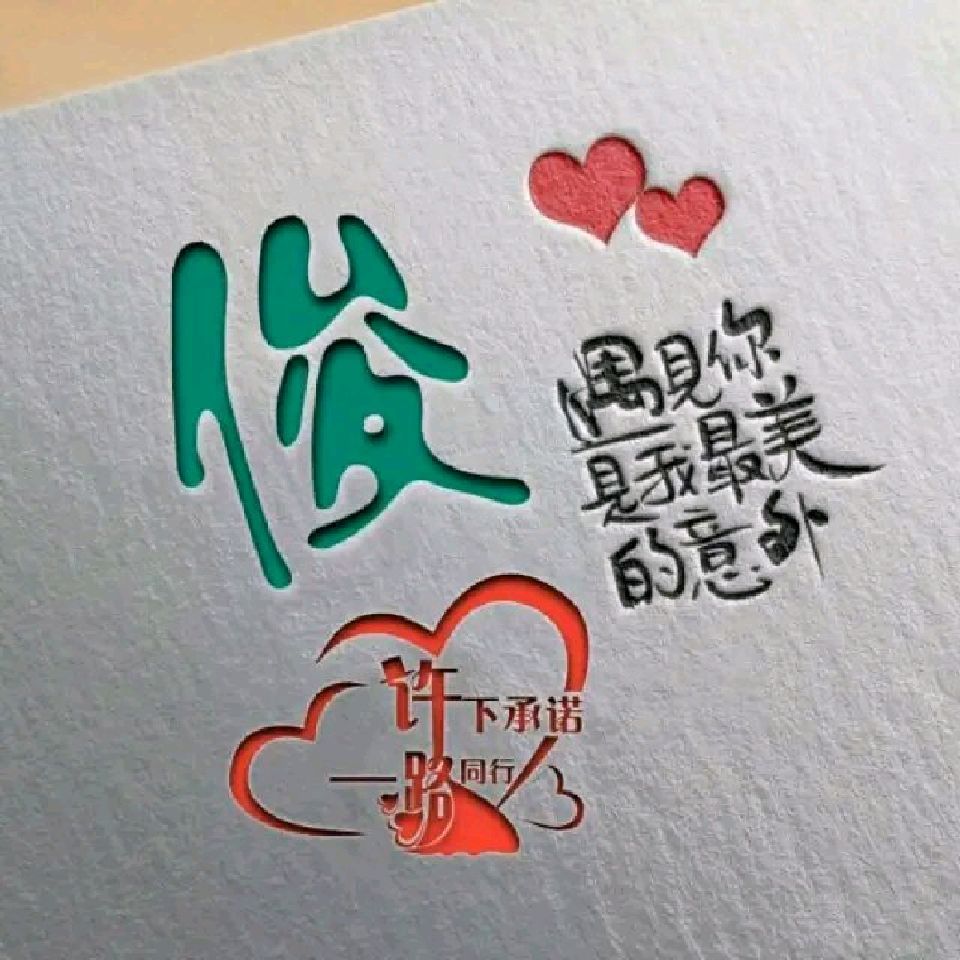 俊
遇見你
是我最美
的意外
许下承诺
一路同行